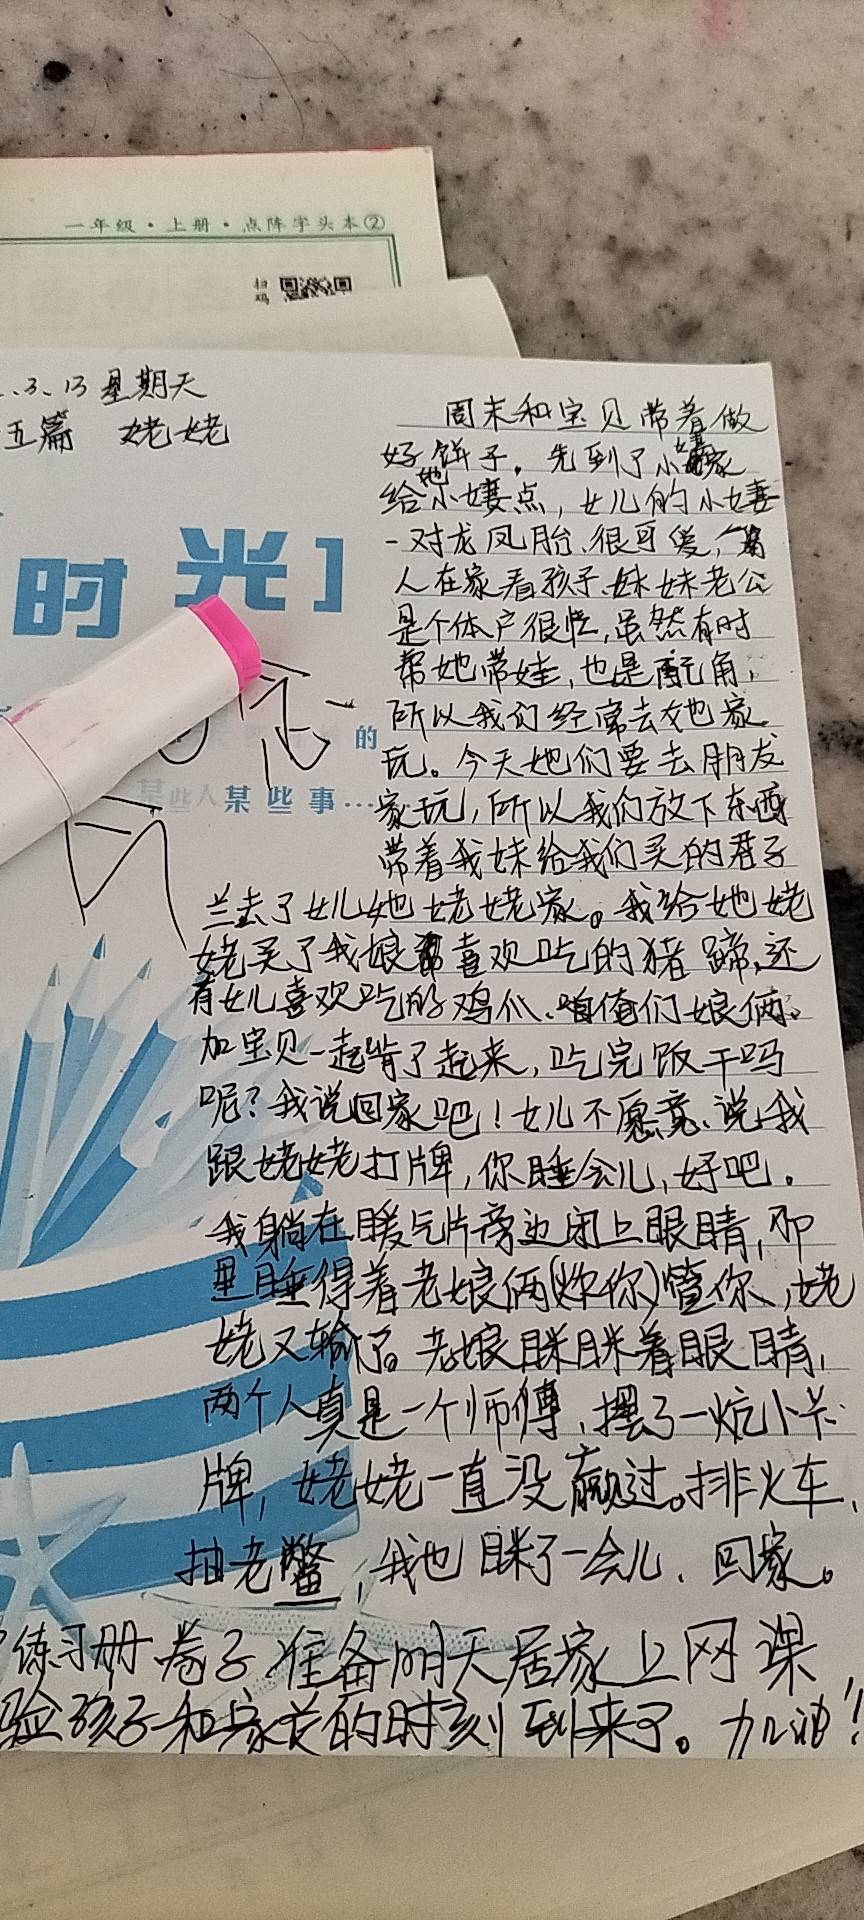 一年级·上册·点阵字头本②
扫码
.3.13 星期天
五篇 姥姥
时光]
的
某些人某些事…
周末和宝贝带着做
好饼子,先到了小妻家
给她小妻点,女儿的小妻
一对龙凤胎、很可爱,一个
人在家看孩子、妹妹老公
是个体户很忙,虽然有时
帮她带娃,也是配角,
所以我们经常去她家
玩。今天她们要去朋友
家玩,所以我们放下东西
带着我妹给我们买的君子
兰去了女儿她姥姥家。我给她姥
姥买了我娘喜欢吃的猪蹄,还
有女儿喜欢吃的鸡爪、俺们娘俩。
加宝贝一起啃了起来,吃完饭干吗
呢?我说回家吧!女儿不愿意、说我
跟姥姥打牌,你睡会儿,好吧。
我躺在暖气片旁边闭上眼睛,那
里睡得着老娘俩(炸你)管你,姥
姥又输了。老娘眯眯着眼睛,
两个人真是一个师傅,摆了一炕小卡
牌,姥姥一直没赢过。排火车、
抽老鳖,我也眯了一会儿、回家。
练习册 卷子 准备明天居家上网课
验孩子和家长的时刻到来了。加油!!